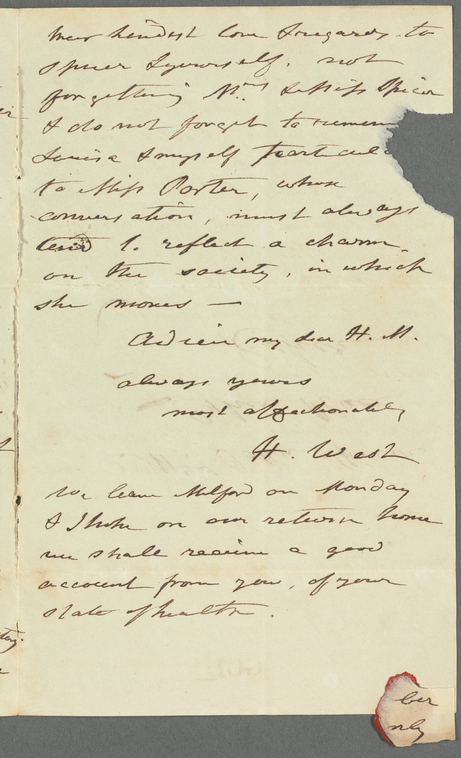 their kindest love & regards to
Spicer & yourself, not
forgetting Mrs & Miss Spicer
& do not forget to remem
Louisa & myself particul
to Miss Porter, whose
conversation, must always
tend to reflect a charm
on the society, in which
she moves —
Adieu my dear H. M.
always yours
most affectionately
H. West
We leave Milford on Monday
& I hope on our return home
we shall receive a good
account from you, of your
state of health.
ber
nly